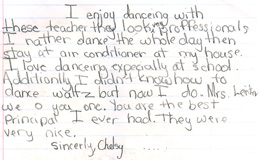 I enjoy danceing with
these teacher they look proffessional,
I rather dance the whole day then
stay at air conditioner at my house.
I love danceing expecially at school.
Additionally I didn't know how to
dance waltz but now I do. Mrs.
we o you one. You are the best
Principal I ever had. They were
very nice.
Sincerly, Chelsy